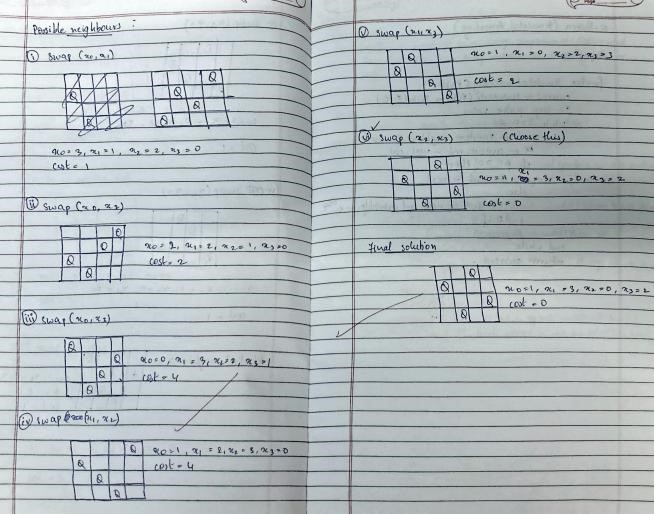 Possible neighbours :
(i) swap (x0, x1)
Q
Q Q
Q
Q Q
Q
x0 = 3, x1 = 1, x2 = 2, x3 = 0
cost = 1
(ii) swap (x0, x2)
Q
Q
Q
Q
x0 = 2, x1 = 2, x2 = 1, x3 = 0
cost = 2
(iii) swap (x0, x3)
Q
Q
Q
Q
x0 = 0, x1 = 3, x2 = 2, x3 = 1
cost = 4
(iv) swap (x1, x2)
Q
Q
Q
Q
x0 = 1, x1 = 2, x2 = 3, x3 = 0
cost = 4
(v) swap (x1, x3)
Q
Q
Q
Q
x0 = 1, x1 = 0, x2 = 2, x3 = 3
cost = 2
(vi) swap (x2, x3) (Choose this)
Q
Q
Q
Q
x0 = 1, x1 = 3, x2 = 0, x3 = 2
cost = 0
Final solution
Q
Q
Q
Q
x0 = 1, x1 = 3, x2 = 0, x3 = 2
cost = 0